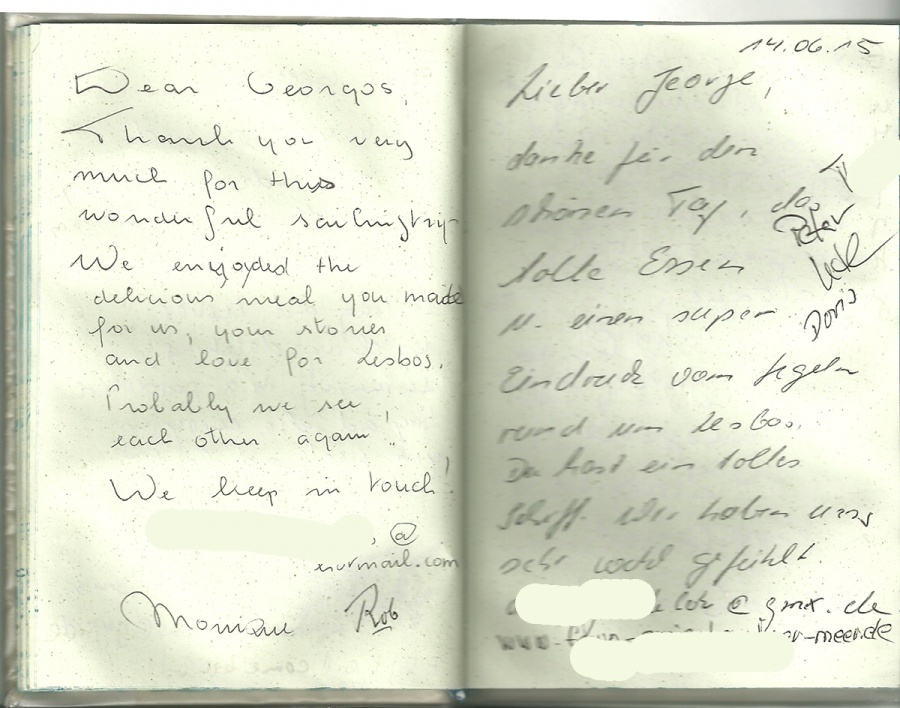 Dear Georgos,
Thank you very
much for this
wonderful sailingtrip
We enjoyed the
delicious meal you made
for us, your stories
and love for Lesbos.
Probably we see
each other again!
We keep in touch!
@
mail.com
Rob
14.06.15
Lieber George,
danke für den
schönen Tag, das
tolle Essen
u. einen super
Eindruck vom Segeln
rund um Lesbos.
Du hast ein tolles
Schiff. Wir haben uns
sehr wohl gefühlt
@ gmx.de
www.
meer.de
Peter
Doris